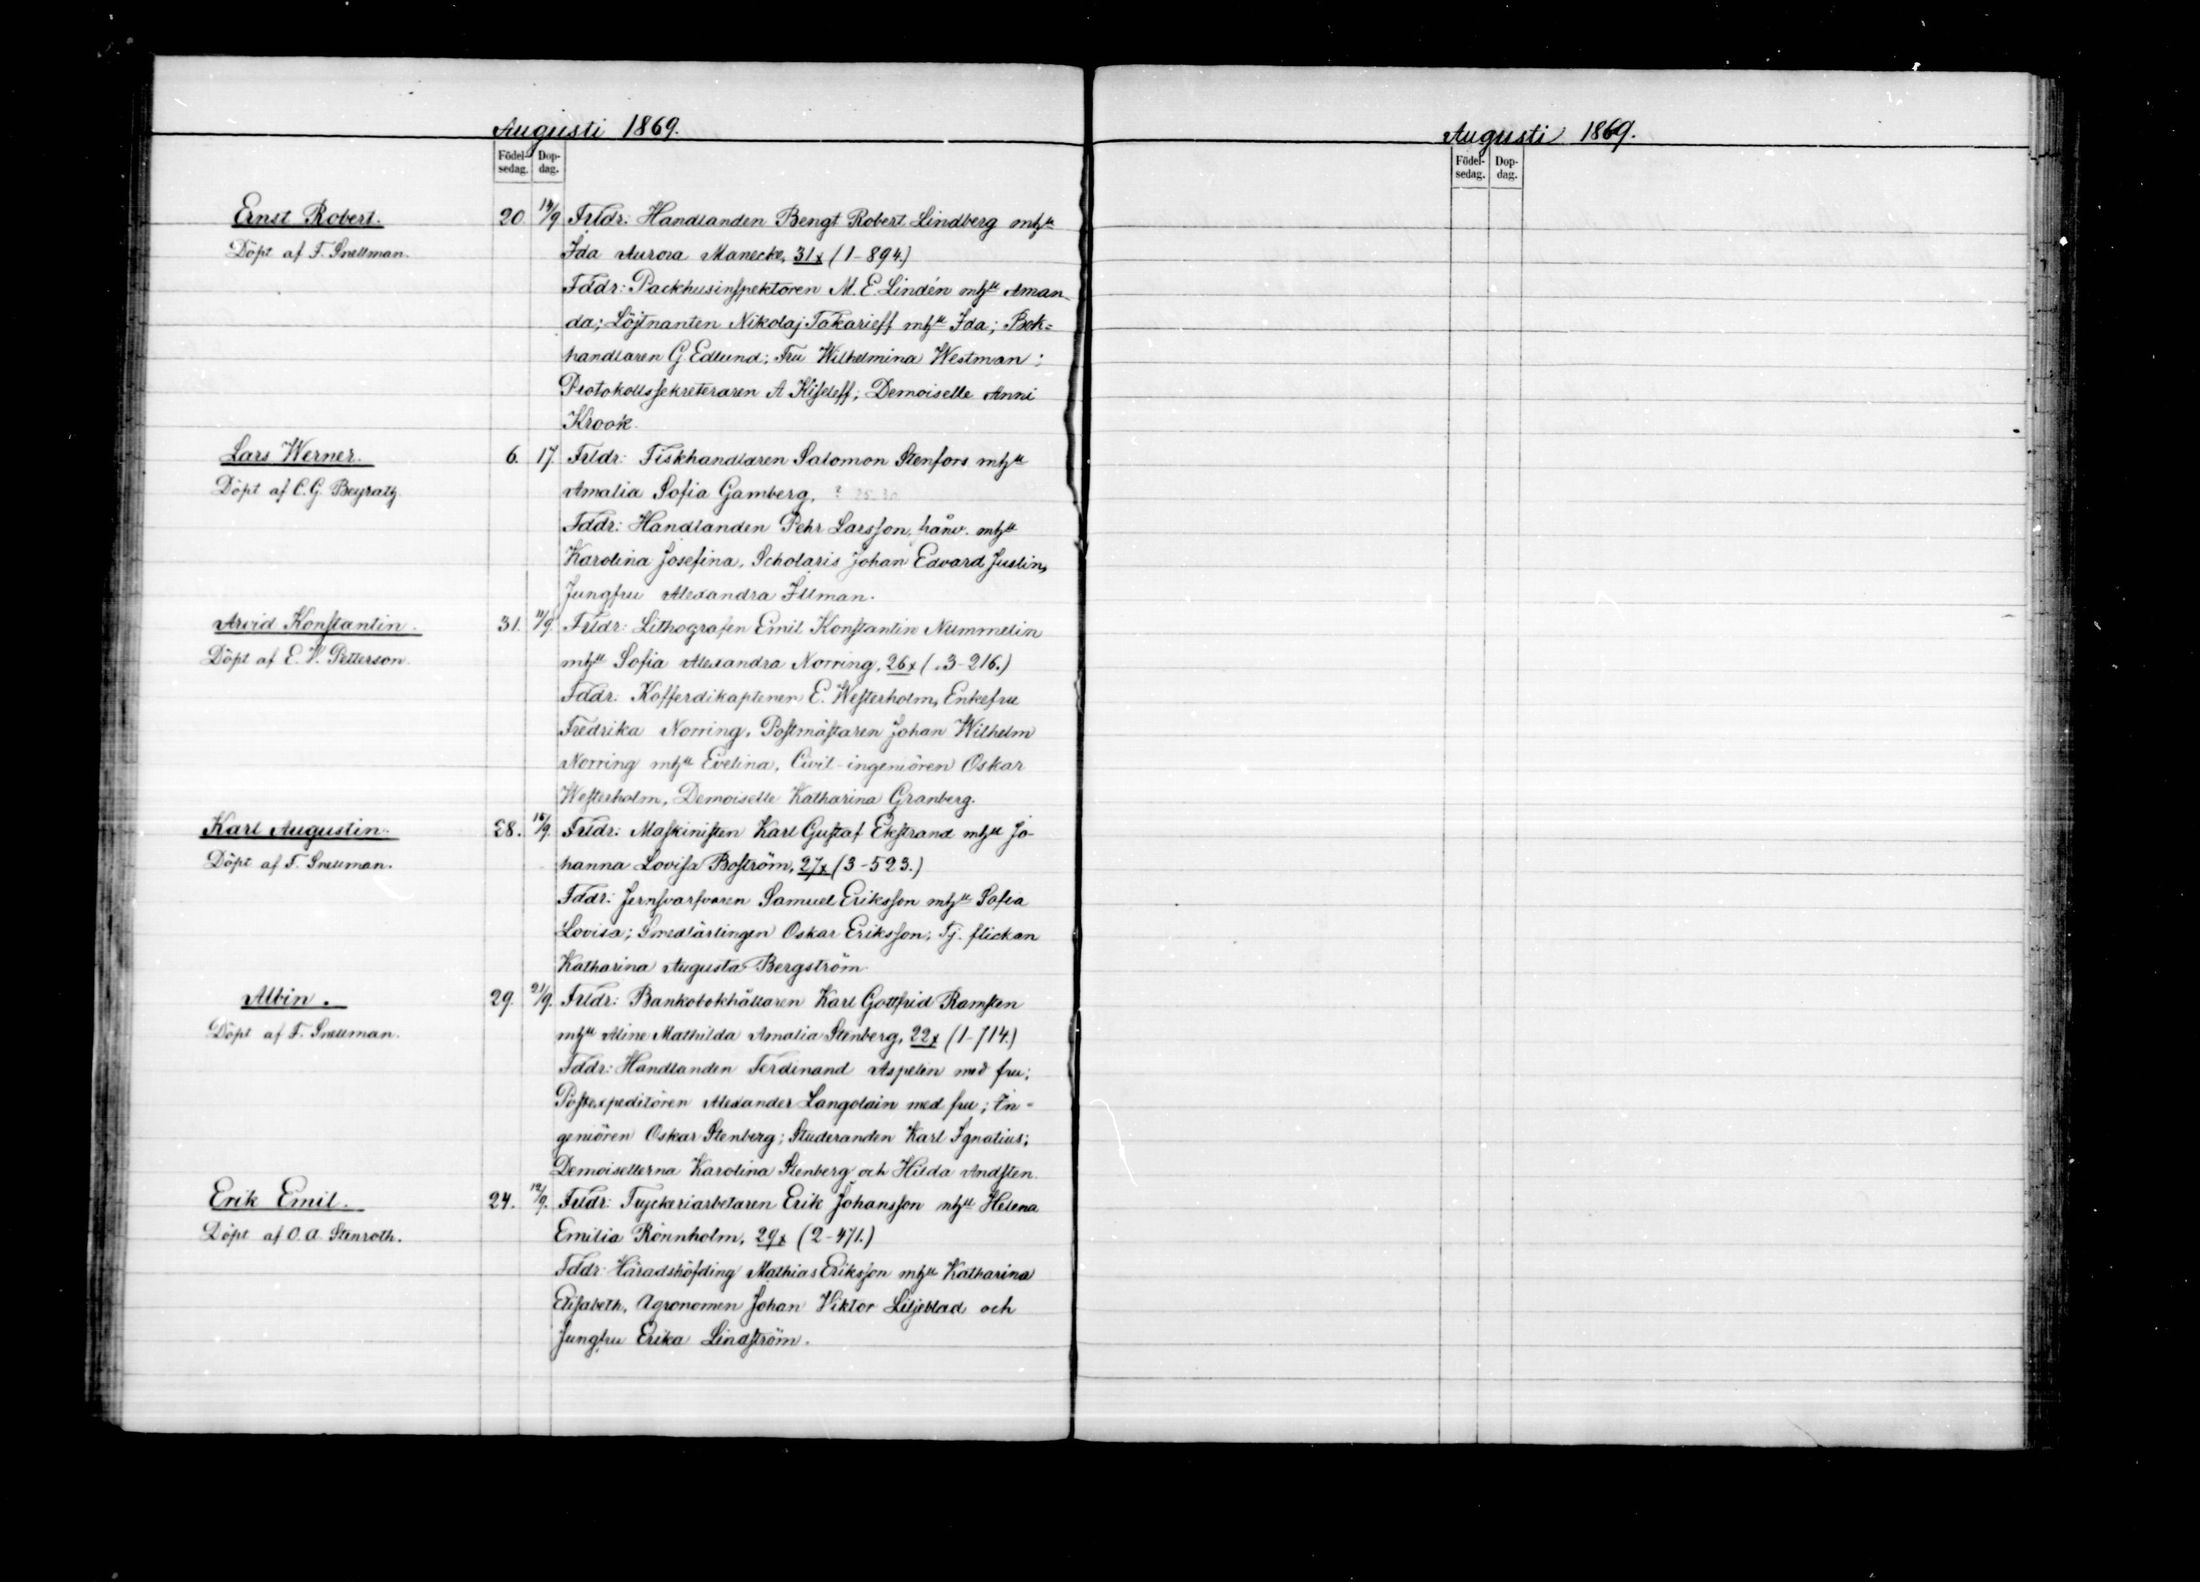 Augusti 1869.
Födel- Dop-
sedag. dag.
Ernst Robert. 20. 14/9 Frldr: Handlanden Bengt Robert Lindberg mhu
Döpt af F. Snellman. Ida Aurora Manecke, 31x (1-894.)
Fddr: Packhusinspektoren M. E. Lindén mhu Aman-
da; Löjtnanten Nikolaj Takarieff mhu Ida; Bok=
handlaren G. Edlund; Fru Wilhelmina Westman;
Protokollssekreteraren A Kiseleff; Demoiselle Anni
Krook.
Lars Werner. 6. 17. Frldr: Fiskhandlaren Salomon Stenfors mhu
Döpt af C. G. Beyrath. Amalia Sofia Gamberg,
Fddr: Handlanden Pehr Larsson, frånv. mhu
Karolina Josefina, Scholaris Johan Edvard Juslin,
Jungfru Alexandra Illman.
Arvid Konstantin. 31. 11/9 Frldr: Lithografen Emil Konstantin Nummelin
Döpt af E. V. Petterson. mhu Sofia Alexandra Norring, 26x (3-216.)
Fddr: Kofferdikaptenen E. Westerholm, Enkefru
Fredrika Norring, Postmästaren Johan Wilhelm
Norring mhu Evelina, Civil-ingeniören Oskar
Westerholm, Demoiselle Katharina Granberg.
Karl Augustin. 28. 16/9. Frldr: Maskinisten Karl Gustaf Ekstrand mhu Jo-
Döpt af F. Snellman. hanna Lovisa Boström, 27x (3-523.)
Fddr: Jernsvarfvaren Samuel Eriksson mhu Sofia
Lovisa; Smedlärlingen Oskar Eriksson; Tj. flickan
Katharina Augusta Bergström.
Albin. 29. 21/9. Frldr: Bankobokhållaren Karl Gottfrid Ramsten
Döpt af F. Snellman. mhu Aline Mathilda Amalia Stenberg, 22x (1-714.)
Fddr: Handlanden Ferdinand Aspelin med fru;
Postexpeditören Alexander Langolain med fru; In-
geniören Oskar Stenberg; Studeranden Karl Ignatius;
Demoisellerna Karolina Stenberg och Hilda Andsten.
Erik Emil. 24. 12/9. Frldr: Tryckeriarbetaren Erik Johansson mhu Helena
Döpt af O. A. Stenroth. Emilia Rönnholm, 29x (2-471.)
Fddr: Häradshöfding Mathias Eriksson mhu Katharina
Elisabeth, Agronomen Johan Viktor Liljeblad och
Jungfru Erika Lindström.
Augusti 1869.
Födel- Dop-
sedag. dag.